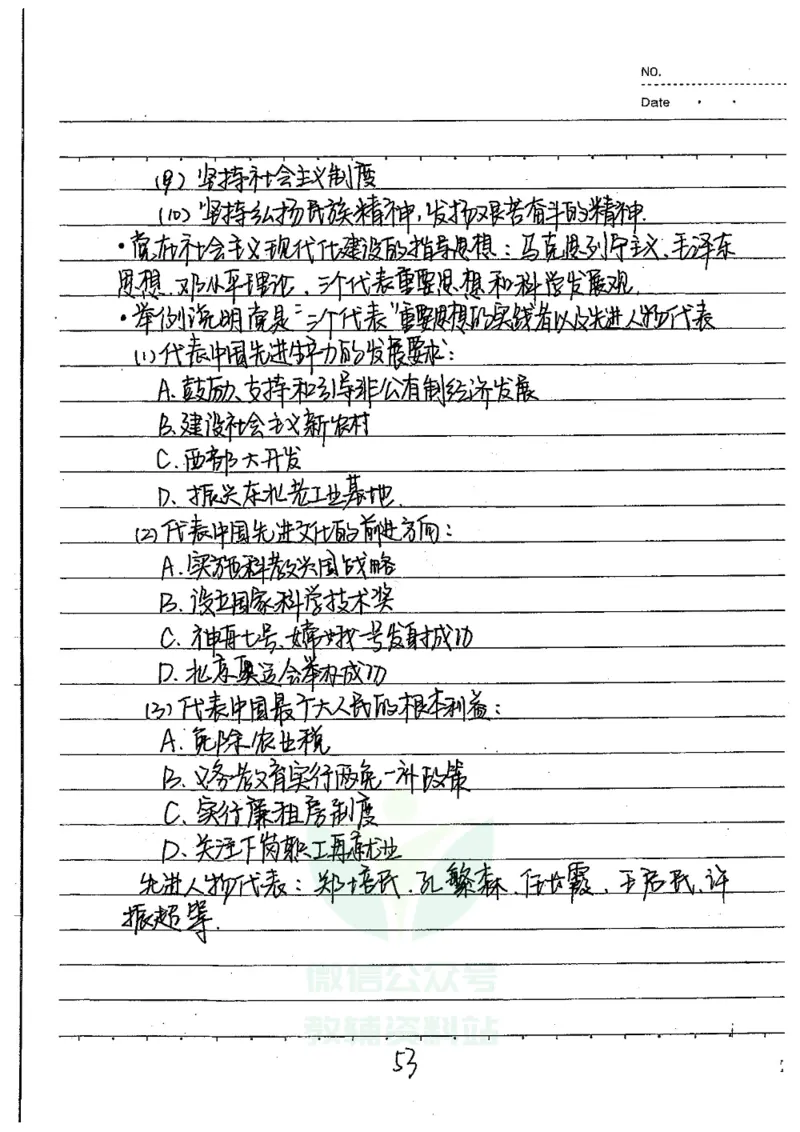 NO.
Date
(9) 坚持社会主义制度
(10) 坚持弘扬民族精神,发扬艰苦奋斗的精神.
·党在社会主义现代化建设的指导思想:马克思列宁主义、毛泽东
思想、邓小平理论、三个代表重要思想和科学发展观.
·举例说明党是"三个代表"重要思想的实践者以及先进人物代表
(1)代表中国先进生产力的发展要求:
A.鼓励、支持和引导非公有制经济发展
B.建设社会主义新农村
C.西部大开发
D.振兴东北老工业基地.
(2)代表中国先进文化的前进方向:
A.实施科教兴国战略
B.设立国家科学技术奖
C.神舟七号、嫦娥一号发射成功
D.北京奥运会举办成功
(3)代表中国最广大人民的根本利益:
A.免除农业税
B.义务教育实行两免一补政策
C.实行廉租房制度
D.关注下岗职工再就业
先进人物代表:郑培民、孔繁森、任长霞、王启民、许
振超等.
微信公众号
教辅资料站
53